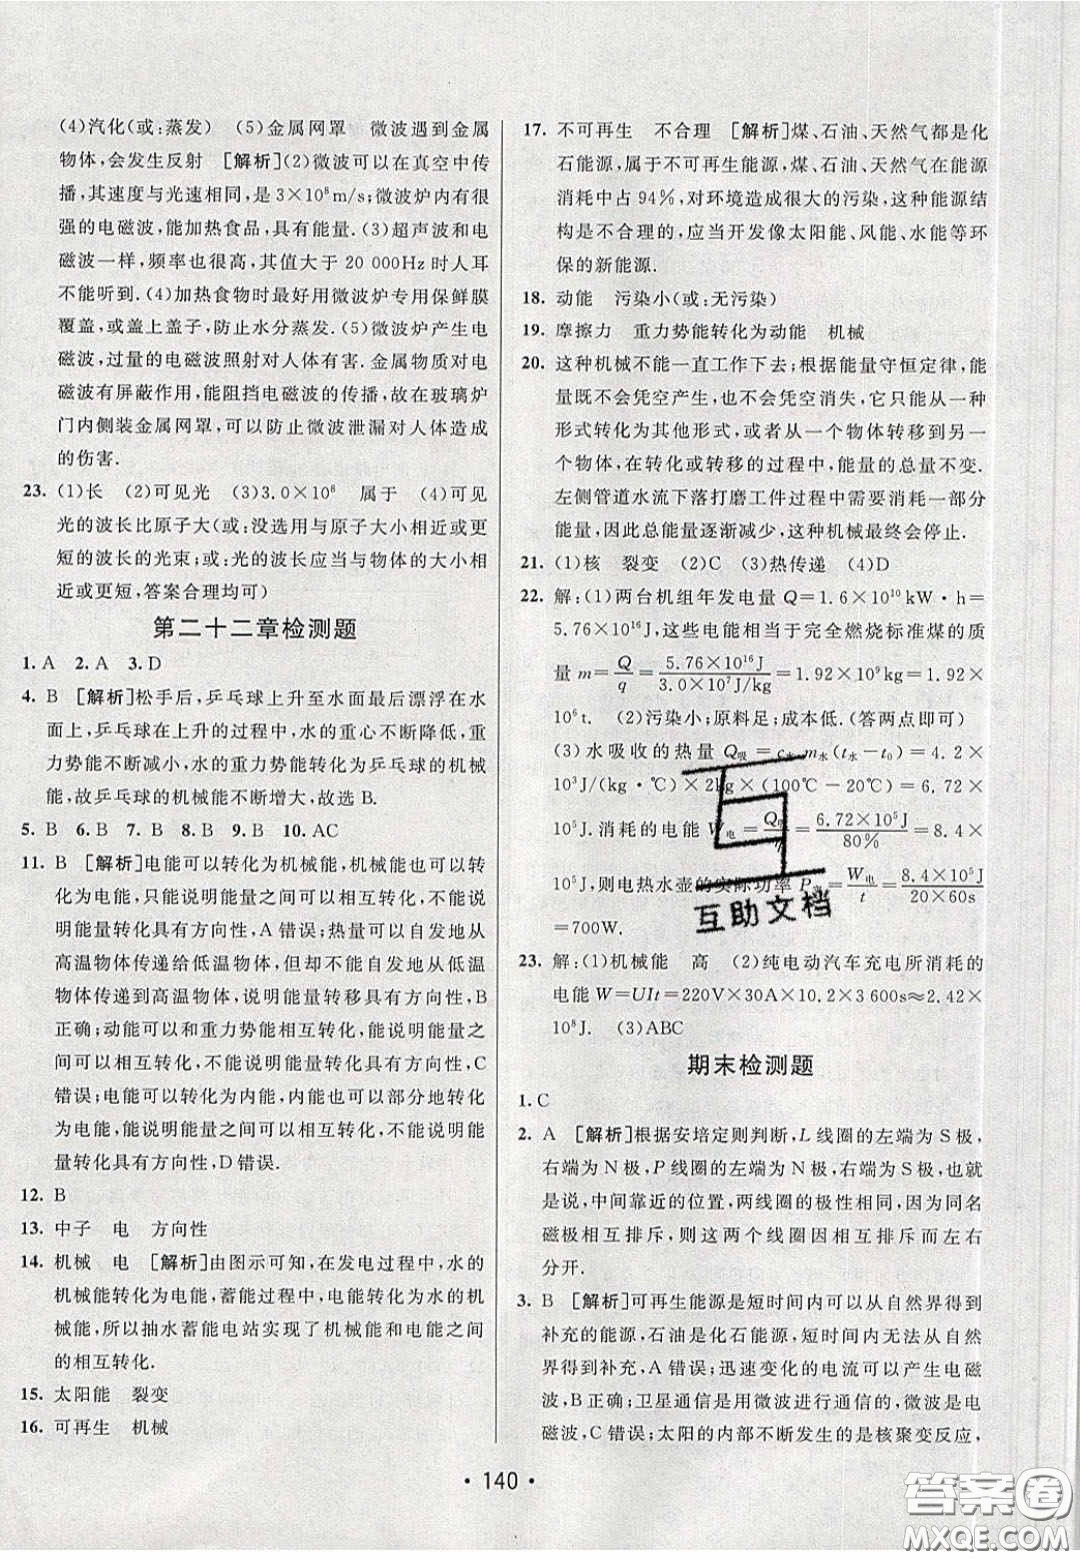 (4)汽化(或:蒸发) (5)金属网罩 微波遇到金属
物体,会发生反射 [解析](2)微波可以在真空中传
播,其速度与光速相同,是 3×10⁸m/s;微波炉中有很
强的电磁波,能加热食品,具有能量.(3)超声波和电
磁波一样,频率也很高,其值大于 20 000Hz 时人耳
不能听到.(4)加热食物时最好用微波炉专用保鲜膜
覆盖,或盖上盖子,防止水分蒸发.(5)微波炉产生电
磁波,过量的电磁波照射对人体有害.金属物质对电
磁波有屏蔽作用,能阻挡电磁波的传播,故在玻璃炉
门内侧装金属网罩,可以防止微波泄漏对人体造成
的伤害.
23. (1)长 (2)可见光 (3)3.0×10⁸ 属于 (4)可见
光的波长比原子大(或:没选用与原子大小相近或更
短的波长的光束;或:光的波长应当与物体的大小相
近或更短,答案合理均可)
第二十二章检测题
1. A 2. A 3. D
4. B [解析]松手后,乒乓球上升至水面最后漂浮在水
面上,乒乓球在上升的过程中,水的重心不断降低,
重力势能不断减小,水的重力势能转化为乒乓球的机械
能,故乒乓球的机械能不断增大,故选 B.
5. B 6. B 7. B 8. B 9. B 10. AC
11. B [解析]电能可以转化为机械能,机械能也可以转
化为电能,只能说明能量之间可以相互转化,不能说
明能量转化具有方向性,A 错误;热量可以自发地从
高温物体传递给低温物体,但却不可以自发地从低温
物体传递到高温物体,说明能量转移具有方向性,B
正确;动能可以和重力势能相互转化,能说明能量之
间可以相互转化,不能说明能量转化具有方向性,C
错误;电能可以转化为化学能,化学能也可以转化
为电能,能说明能量之间可以相互转化,不能说明能
量转化具有方向性,D 错误.
12. B
13. 中子 电 方向性
14. 机械 电 [解析]由图示可知,在发电过程中,水的
机械能转化为电能,蓄能过程中,电能转化为水的机
械能,所以抽水蓄能电站实现了机械能和电能之间
的相互转化.
15. 太阳能 裂变
16. 可再生 机械
17. 不可再生 不合理 [解析]煤、石油、天然气都是化
石能源,属于不可再生能源,煤、石油、天然气在能源
消耗中占 94%,对环境造成很大的污染,这种能源结
构是不合理的,应当开发像太阳能、风能、水能等环
保的新能源.
18. 动能 污染小(或:无污染)
19. 摩擦力 重力势能转化为动能 机械
20. 这种机械不能一直工作下去;根据能量守恒定律,能
量既不会凭空产生,也不会凭空消失,它只能从一种
形式转化为其他形式,或者从一个物体转移到另
一个物体,在转化或转移的过程中,能量的总量不变.
左侧管道水流下落打磨工件过程中需要消耗一部分
能量,因此总能量逐渐减少,这种机械最终会停止.
21. (1)核 裂变 (2)C (3)热传递 (4)D
22. 解:(1)两台机组年发电量 Q=1.6×10¹⁰kW·h=
5.76×10¹⁶J,这些电能相当于完全燃烧标准煤的质
量 m=Q/q=5.76×10¹⁶J/3.0×10⁷J/kg=1.92×10⁹kg=1.92×
10⁶t. (2)污染小;原料足;成本低.(答两点即可)
(3)水吸收的热量 Q吸=c水m水(t水-t₀)=4.2×
10³J/(kg·℃)×2kg×(100℃-20℃)=6.72×
10⁵J.消耗的电能 W电=Q吸/η=6.72×10⁵J/80%=8.4×
10⁵J,则电热水壶的实际功率 P实=W电/t=8.4×10⁵J/20×60s
=700W.
23. 解:(1)机械能 高 (2)纯电动汽车充电所消耗的
电能 W=UIt=220V×30A×10.2×3 600s≈2.42×
10⁸J. (3)ABC
期末检测题
1. C
2. A [解析]根据安培定则判断,L 线圈的左端为 S 极,
右端为 N 极,P 线圈的左端为 N 极,右端为 S 极,也就
是说,中间靠近的位置,两线圈的极性相同,因为同名
磁极相互排斥,则这两个线圈相互排斥而左右
分开.
3. B [解析]可再生能源是短时间内可以从自然界得到
补充的能源,石油是化石能源,短时间内无法从自
然界得到补充,A 错误;迅速变化的电流可以产生电磁
波,B 正确;卫星通信是用微波进行通信的,微波是电
磁波,C 错误;太阳的内部不断发生的是核聚变反应,
互助文档
· 140 ·
答案卷
MXQE.COM